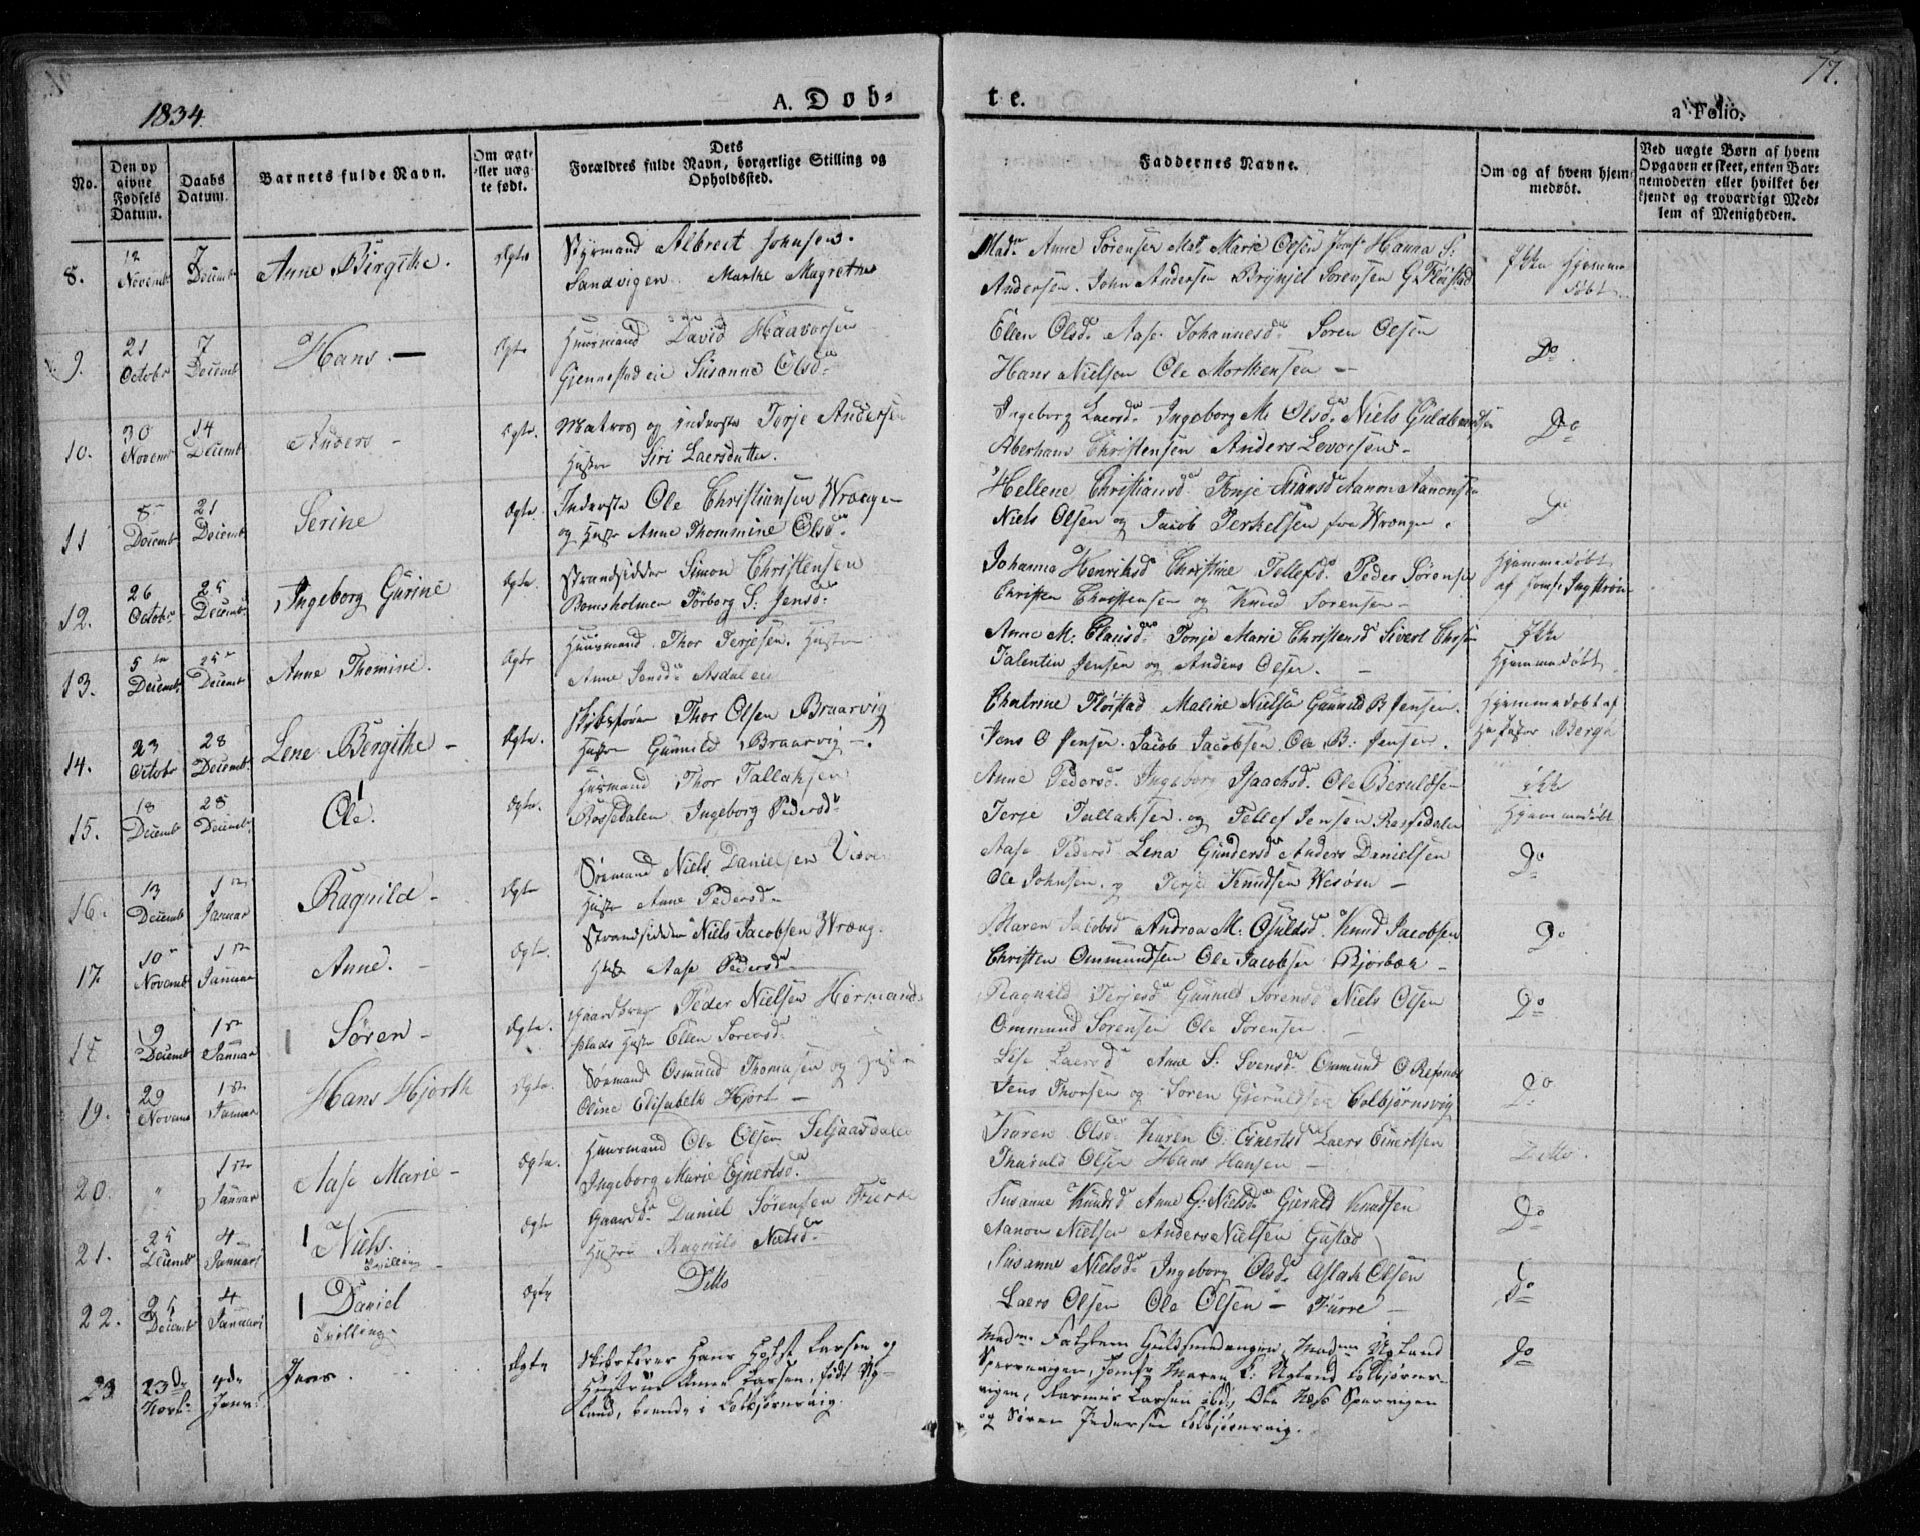 1834
A. Døb-
te.
77.
a Folio.
No.
Den op
givne
Fødsels
Datum.
Daabs
Datum.
Barnets fulde Navn.
Om ægte
eller uæg-
te født.
Dets
Forældres fulde Navn, borgerlige Stilling og
Opholdssted.
Faddernes Navne.
Om og af hvem hjem-
medøbt.
Ved uægte Børn af hvem
Opgaven er skeet, enten Bar-
nemoderen eller hvilket be-
kjendt og troværdigt Med-
lem af Menigheden.
8.
12 Novembr
7 Decembr
Anne Birgithe.
Ægte
Styrmand Albreit Johnsen.
Sandvigen Marthe Magrethe
Madm Anne Sørensen Mad. Marie Olsen Jomf. Hanna S:
Andersen. John Andersen Brynjel Sørensen G. Fløistad
Ikke Hjemme
døbt
9.
21 Octobr
7 Decembr
Hans. —
Ægte
Huusmand David Haavorsen
Gjennestad eie Susanne Olsd.
Ellen Olsd. Aase Johannesd. Soren Olsen
Hans Nielsen Ole Morthensen —
Do.
10.
30 Novembr
14 Decembr
Anders -
Ægte.
Matros og Inderste Terje Andersen
Hustru Siri Laersdatter.
Ingeborg Laersd. Ingeborg M. Olsd. Niels Guldbrandsen
Aberham Christensen Anders Levorsen -
Do
11
8 Decembr
21 Decembr
Serine
Ægte.
Inderste Ole Christiansen Wrænge -
og Hustr Anne Thommine Olsd.
Hellene Christiansd. Tonje Niansd Aanon Aanonsen
Niels Olsen og Jacob Terkelsen fra Wrængen.
Do
12.
26 Octobr
25 Decembr
Ingeborg Gurine
Ægte.
Strandsidder Simon Christensen
Bomsholmen Torborg S: Jensd.
Johanna Henriksd Christine Tellefsd. Peder Sørensen
Christen Christensen og Knud Sorensen -
Hjemmedøbt
af Jomf. Ingstrøm
13.
5te Decembr
25de Decembr
Anne Thomine.
Ægte
Huusmand Thor Terjesen. Hustru
Anne Jensd. Asdal eie
Anne M: Clausd. Tonje Marie Christensd Sivert Christ
Talentin Jensen og Anders Olsen. -
Ikke
Hjemmedøbt.
14.
23 Octobr
28 Decembr
Lene Bergithe -
Ægte.
Skibsfører Thor Olsen Braarvig
Hustru Gunnild Braarvig -.
Chatrine Fløistad Maline Nielsen Gunnild B Jensen.
Jens O Jensen. Jacob Jacobsen Ole B: Jensen.
Hjemmedøbt af
Bergh
15.
18 Decembr
28 Decembr
Ole.
Ægte.
Husmand Thor Tallaksen
Rossedalen Ingeborg Pedersd.
Anne Pedersd. Ingeborg Isaachsd. Ole Beruldsen
Terje Tallaksen. og Tellef Jensen Rossedalen
ikke
Hjemmedøbt
16.
13 Decembr
1ste Januar
Ragnild -
Ægte
Sømand Niels Danielsen
Hustr Anne Pedersd.
Aase Pedersd Lena Gundersd Anders Danielsen
Ole Johnsen. og Terje Knudsen Wesøen —
Do
17.
10de Novembr
1ste Januar
Anne. -
Ægte.
Strandsidder Niels Jacobsen Wræng.
Hustr Aase Pedersd.
Maren Jacobsd Andrea M: Osuldsd. Knud Jacobsen
Christen Ommundsen Ole Jacobsen Bjorbæk -
Do
18
9 Decembr
1ste Januar
Søren -
Ægte.
Gaardbrug Peder Nielsen Hermands-
plads Hustr Ellen Sorensd.
Ragnild Terjesd. Gunnild Sorensd Niels Olsen
Ommund Sorensen Ole Sorensen. -
Do
19.
29 Novembr
1ste Januar
Hans Hjorth
Ægte.
Sømand Osmund Thomasen og
Oline Elisabeth Hjort -
Lise Laersd Anne S: Svensd. Ommund O
Jens Thorsen og Soren Gieruldsen Colbjørnsvig
Do
20.
"
1ste Januar
Aase Marie -
Ægte.
Huusmand Ole Olsen Seljaasdalen
Ingeborg Marie Ejnertsd.
Karen Olsd. Karen O: Einertsd Laers Einertsen
Tharald Olsen Hans Hansen -
Ditto.
21.
25 Decembr
4 Januari
Niels.
Tvilling
Ægte
Gaardb. Daniel Sørensen Fierre
Hustru Ragnild Nielsd.
Susanne Knudsd Anne G: Nielsd. Gjerald Knudsen
Aanon Nielsen Anders Nielsen Gustad
Do
22.
25 Decembr
4 Januari
Daniel
Tvilling -
Ægte
Ditto
Susanne Nielsd. Ingeborg Olsd. Aslak Olsen
Laers Olsen Ole Olsen — Furre —
Do
23
23de Novb.
4de Janr.
Jens.
Ægte
Skibsfører Hans Holst Larsen og
Hustrue Anne Larsen, født Ug-
land, boende i Colbjørnsvig.
Madm. Guldsmedengen, Madm. Ugland
Spærvigen, Jomfr Maren L: Ugland Colbjørns-
vigen, Larsen ibd, Ole Næss Spervigen
og Søren Pedersen Colbjørnsvig.
Do